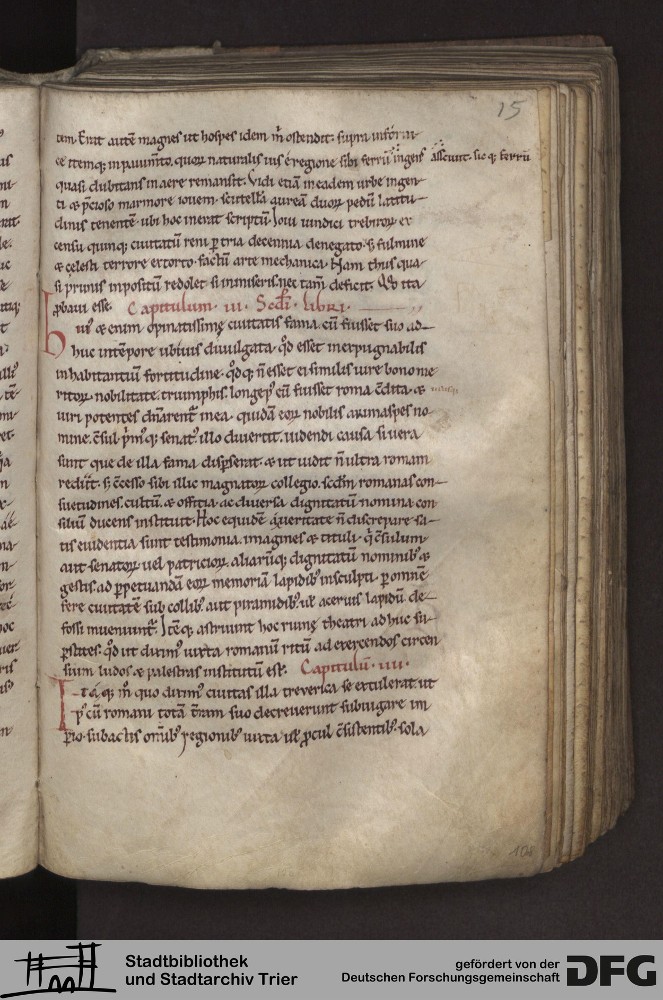 15
tem. Erat autē magnes ut hospes idem m̄ ostendit. supra infornı-
ce itemq; in pauim̄to. quoꝝ naturalis uis ē regione sibi ferrū ingens asciuit. sicq; ferrū
quasi dubitans in aere remansit. Vidi etiā in eadem urbe ingen-
ti & p̄cioso marmore iouem. scutellā aureā duoꝝ pedū latitu-
dinis tenentē. ubi hoc inerat scriptū. Ioui uindici trebiroꝝ ex
censu quinq; ciuitatū reni p tria decennia denegato. s; fulmine
& celesti terrore extorto. factū arte mechanica. Nam thus qua-
si prunis inpositū redolet si inmiseris. nec tam̄ deficit. Qd ita
p̄baui esse. Capitulum. III. Scdi. libri.
Huı' & enim opinatissimę ciuitatis fama. cū fuisset suo ad-
huc intēpore ubiuis diuulgata. qd esset inexpugnabilis
inhabitantiū fortitudine. qdq; n̄ esset ei similis iure bono me-
ritoꝝ nobilitate. triumphis. longeq; cū fuisset roma c̄dita. &
uiri potentes dn̄arent̄ in ea. quidā eoꝝ nobilis arimaspes no-
mine. c̄sul p̄m'q; senat'. illo diuertit. uidendi causa si uera
sunt que de illa fama disp̄serat. & ut uidit n̄ ultra romam
rediit. s; c̄cesso sibi illic magnatoꝝ collegio. scdm romanas con-
suetudines. cultū. & officia. ac diuersa dignitatū nomina con-
siliū ducens instituit. Hoc equidē a ueritate n̄ discrepare sa-
tis euidentia sunt testimonia. imagines & tituli. q̄ c̄sulum
aut senatoꝝ uel patricioꝝ. aliarūq; dignitatū nominib; &
gestis. ad p̄petuandā eoꝝ memoriā lapidib; insculpti. p omnē
fere ciuitatē sub collib; aut piramidib; ul' aceruis lapidū de-
fossi inueniunt̄. Itēq; astruunt hoc ruinę theatri adhuc su-
p̄stites. qd ut diximus iuxta romanū ritū ad exercendos circen
sium ludos. & palestras institutū est. Capitulū. IIII.
Itaq; in quo diximus ciuitas illa treuerica se extulerat. ut
p̄cū romani totā t̄ram suo decreuerunt subiugare im
p̄io. subactis om̄ib; regionib; iuxta ul' p̄cul c̄sistentib;. sola
101
Stadtbibliothek
und Stadtarchiv Trier
gefördert von der
Deutschen Forschungsgemeinschaft
DFG